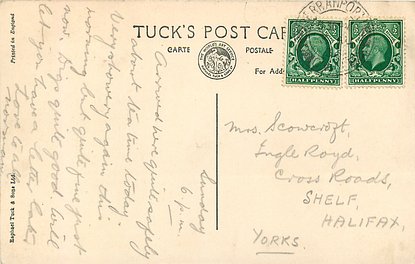 TUCK'S POST CARD
CARTE POSTALE
For Address
PERRANPOR
HALFPENNY
HALFPENNY
Printed in England
Raphael Tuck & Sons Ltd.
Sunday
6 p.m.
Arrived here quite safely
about tea time today.
Very showery again this
morning but quite fine just
now. Digs quite good. Will
let you have a letter later
Love to all
Norman
Mrs. Scowcroft,
Ingle Royd,
Cross Roads,
SHELF,
HALIFAX,
YORKS.